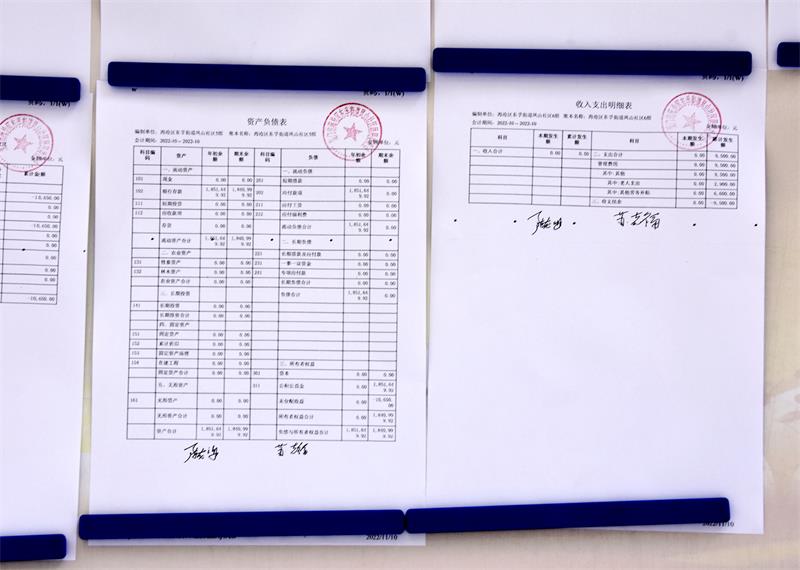 页码：1/1(W)
金额单位：元
累计金额
-10,650.00
0.00
0.00
-10,650.00
0.00
0.00
0.00
0.00
0.00
-10,650.00
页码：1/1(W)
资产负债表
会计期间：2022-10－2022-10
金额单位：元
科目编码 资产 年初余额 期末余额 科目编码 负债 年初余额 期末余额
一、流动资产 一、流动负债
101 现金 0.00 0.00 201 短期借款 0.00 0.00
102 银行存款 1,851,649.92 1,840,999.92 202 应付款项 1,851,649.92 0.00
111 短期投资 0.00 0.00 211 应付工资 0.00 0.00
112 应收款项 0.00 0.00 212 应付福利费 0.00 0.00
存货 0.00 0.00 流动负债合计 1,851,649.92 0.00
流动资产合计 1,851,649.92 1,840,999.92 二、长期负债
二、农业资产 221 长期借款及应付款 0.00 0.00
131 牲畜资产 0.00 0.00 231 一事一议资金 0.00 0.00
132 林木资产 0.00 0.00 241 专项应付款 0.00 0.00
农业资产合计 0.00 0.00 长期负债合计 0.00 0.00
三、长期投资 负债合计 1,851,649.92 0.00
141 长期投资 0.00 0.00
长期投资合计 0.00 0.00
四、固定资产
151 固定资产 0.00 0.00
152 累计折旧 0.00 0.00
153 固定资产清理 0.00 0.00
154 在建工程 0.00 0.00 三、所有者权益
固定资产合计 0.00 0.00 301 资本 0.00 0.00
五、无形资产 311 公积公益金 0.00 1,851,649.92
161 无形资产 0.00 0.00 未分配收益 0.00 -10,650.00
无形资产合计 0.00 0.00 所有者权益合计 0.00 1,840,999.92
资产合计 1,851,649.92 1,840,999.92 负债与所有者权益合计 1,851,649.92 1,840,999.92
2022/11/10
页码：1/1(W)
收入支出明细表
会计期间：2022-10－2022-10
金额单位：元
科目 本期发生额 累计发生额 科目 本期发生额 累计发生额
一、收入合计 0.00 0.00 二、支出合计 0.00 9,500.00
管理费用 0.00 9,500.00
其中:其他 0.00 0.00
其中:老人支出 0.00 2,900.00
其中:其他劳务补贴 0.00 6,600.00
三、收支结余 0.00 -9,500.00
2022/11/10